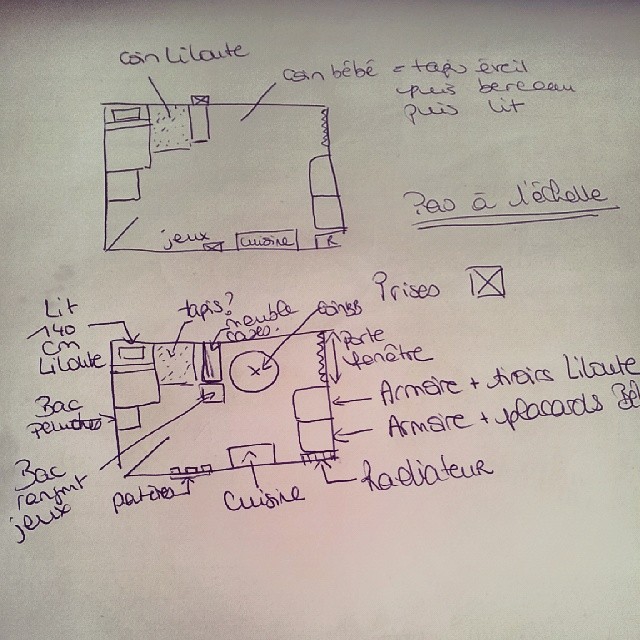 coin Liloute
coin bébé = tapis éveil
puis berceau
puis lit
Pas à l'échelle
jeux
cuisine
R
Prises
Lit
140
cm
Liloute
tapis?
meuble
cases
Porte
fenêtre
Armoire + tiroirs Liloute
Armoire + placards Bé
Bac
peluches
Bac
rangmt
jeux
patères
Cuisine
Radiateur